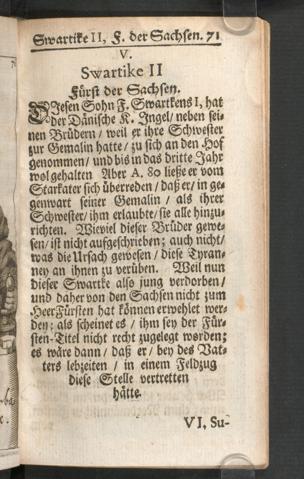 Swartike II, F. der Sachsen. 71
V.
Swartike II
Fürst der Sachsen.
DIesen Sohn F. Swartkens I, hat
der Dänische K. Ingel/ neben sei-
nen Brüdern/ weil er ihre Schwester
zur Gemalin hatte/ zu sich an den Hof
genommen/ und bis in das dritte Jahr
wol gehalten Aber A. 80 ließe er vom
Starkater sich überreden/ daß er/ in ge-
genwart seiner Gemalin/ als ihrer
Schwester/ ihm erlaubte/ sie alle hinzu-
richten. Wieviel dieser Brüder gewe-
sen/ ist nicht aufgeschrieben; auch nicht/
was die Ursach gewesen/ diese Tyran-
ney an ihnen zu verüben. Weil nun
dieser Swartke also jung verdorben/
und daher von den Sachsen nicht zum
HeerFürsten hat können erwehlet wer-
den: als scheinet es/ ihm sey der Für-
sten-Titel nicht recht zugelegt worden;
es wäre dann/ daß er/ bey des Vat-
ters lebzeiten/ in einem Feldzug
diese Stelle vertretten
hätte.
VI, Su-